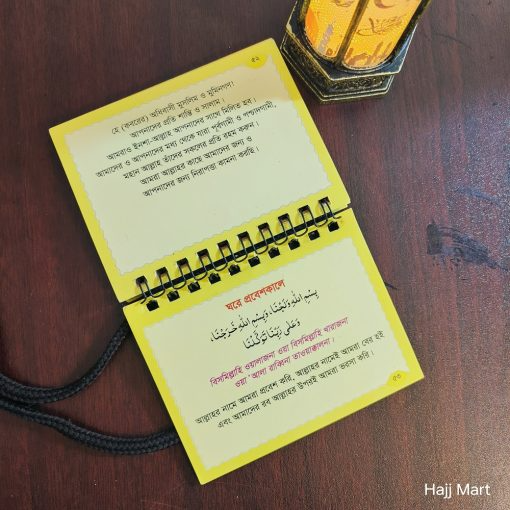 ৫২
হে (কবরের) অধিবাসী মুসলিম ও মুমিনগণ!
আপনাদের প্রতি শান্তি ও সালাম।
আমরাও ইনশা-আল্লাহ আপনাদের সাথে মিলিত হব।
আমাদের ও আপনাদের মধ্য থেকে যারা পূর্বগামী ও পশ্চাদগামী,
মহান আল্লাহ তাঁদের সকলের প্রতি রহম করুন।
আমরা আল্লাহর কাছে আমাদের জন্য ও
আপনাদের জন্য নিরাপত্তা কামনা করছি।
ঘরে প্রবেশকালে
بِسْمِ اللّٰهِ وَلَجْنَا، وَبِسْمِ اللّٰهِ خَرَجْنَا،
وَعَلَى رَبِّنَا تَوَكَّلْنَا
বিসমিল্লাহি ওয়ালাজনা ওয়া বিসমিল্লাহি খারাজনা
ওয়া 'আলা রাব্বিনা তাওয়াক্কালনা।
আল্লাহর নামে আমরা প্রবেশ করি, আল্লাহর নামেই আমরা বের হই
এবং আমাদের রব আল্লাহর উপরই আমরা ভরসা করি।
৫৩
Hajj Mart